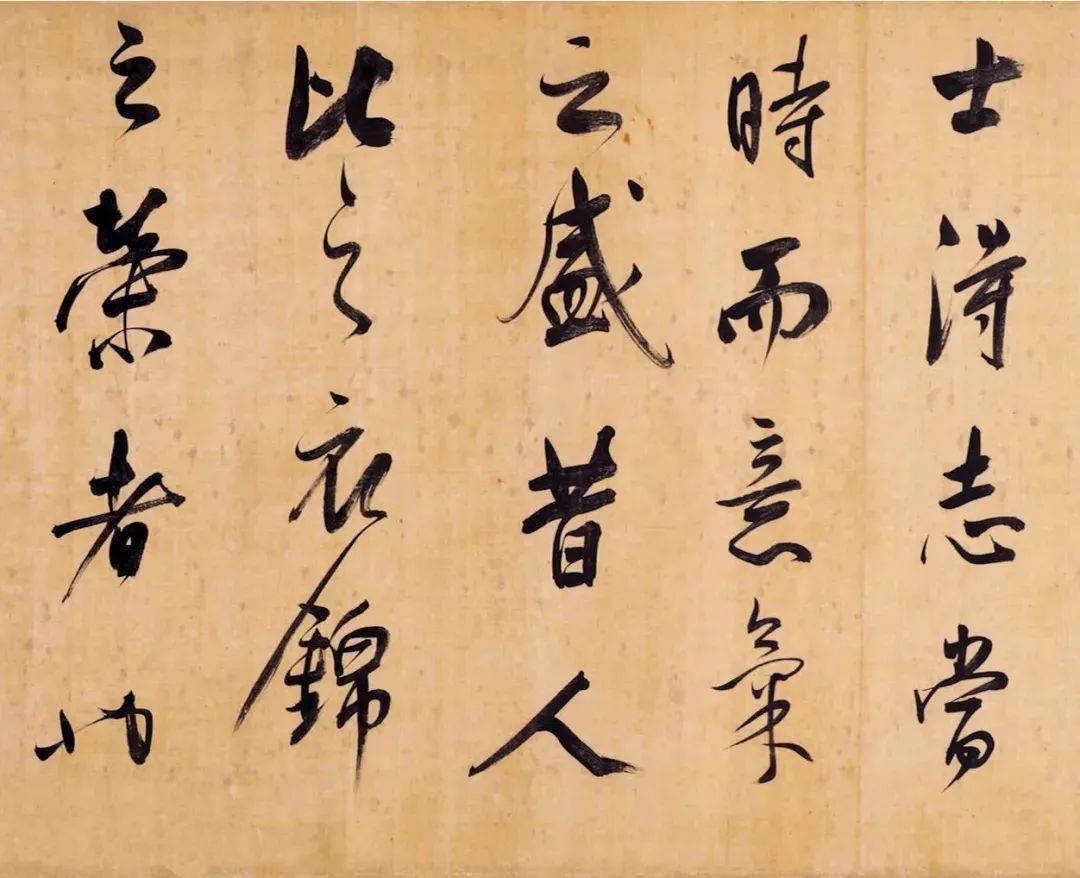 士得志當
時而意氣
之盛昔人
比之衣錦
之榮者也